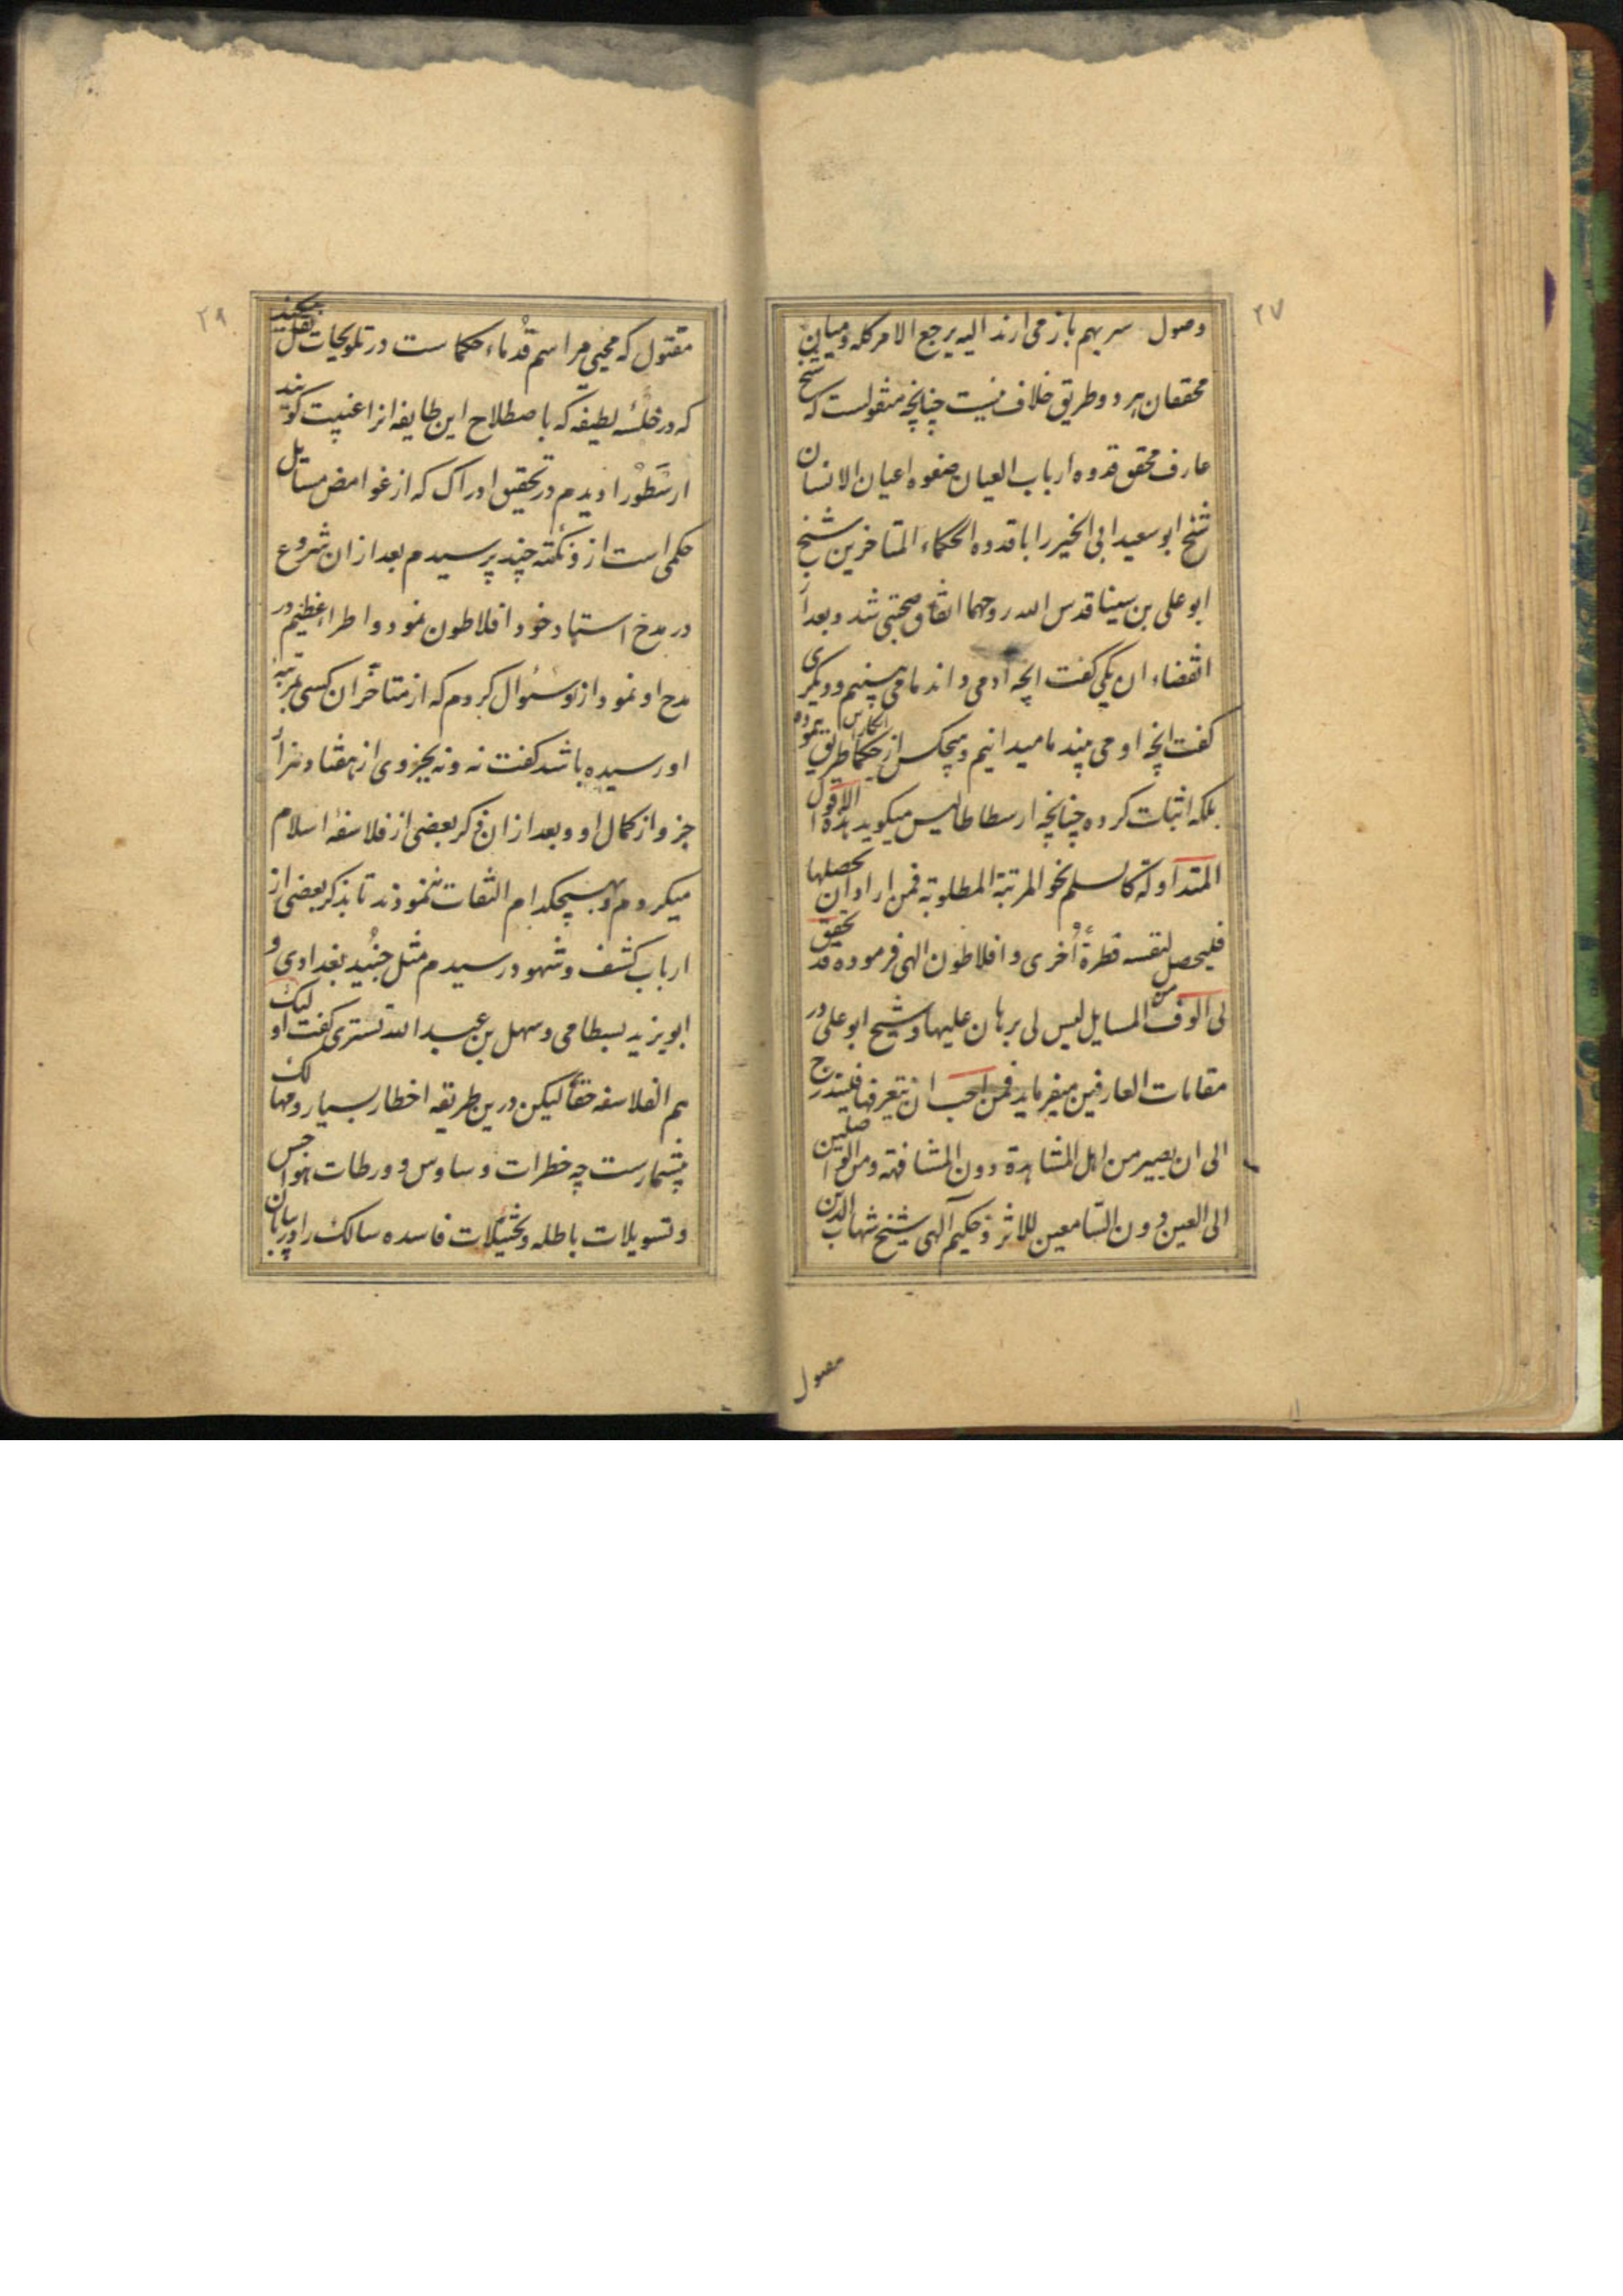 ۲۷
وصول سر بهم باز می ارند الیه یرجع الامر کله و میان
محققان هر دو طریق خلاف نیست چنانچه منقولست که شیخ
عارف محقق قدوه ارباب العیان صفوه اعیان الانسان
شیخ ابو سعید ابی الخیر را با قدوه الحکماء المتاخرین شیخ
ابو علی بن سینا قدس الله روحهما اتفاق صحبتی شد و بعد از
انقضاء ان یکی گفت انچه او می داند ما می بینیم و دیگری
گفت انچه او می بیند ما میدانیم و هیچکس از حکما انکار این طریق ننموده
بلکه اثبات کرده چنانچه ارسطاطالیس میگوید هذه الاقوال
المتداولة کالسلم نحو المرتبة المطلوبة فمن اراد ان یحصلها
فلیحصل لنفسه فطرةً اُخری و افلاطون الهی فرموده قد تحقق
لی الوف من المسایل لیس لی برهان علیها و شیخ ابو علی در
مقامات العارفین میفرماید فمن احب ان یتعرفها فلیتدرج
الی ان یصیر من اهل المشاهدة دون المشافهة و من الواصلین
الی العین دون السّامعین للاثر و حکیم آلهی شیخ شهاب الدین
مقتول
۲۹
مقتول که محیی مراسم قُدماء حکماست در تلویحات نقل میکند
که در خلسهٔ لطیفه که باصطلاح این طایفه انرا غیبت گویند
ارسَطُو را دیدم در تحقیق ادراک که از غوامض مسایل
حکمی است ازو نکته چند پرسیدم بعد ازان شروع
در مدح استاد خود افلاطون نمود و اطراء عظیم در
مدح او نمود ازو سئوال کردم که از متاخّران کسی بمرتبه
او رسیده باشد گفت نه و نه بجزوی از هفتاد هزار
جزو از کمال او و بعد ازان ذکر بعضی از فلاسفهٔ اسلام
میکردم و بهیچکدام التفات ننمودند تا بذکر بعضی از
ارباب کشف و شهود رسیدم مثل جنُید بغدادی و
ابو یزید بسطامی و سهل بن عبد الله تستری گفت اولیک
هم الفلاسفه حقاً لیکن درین طریقه اخطار بسیار و مهالک
بیشمارست چه خطرات وساوس و ورطات هواجس
و تسویلات باطله و تخیّلات فاسده سالک را در بیابان